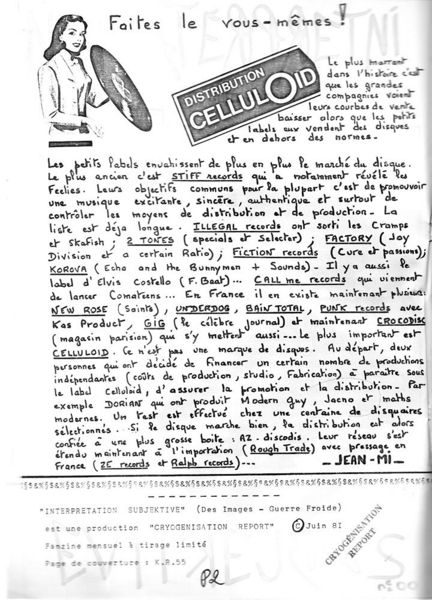 Faites le vous-mêmes !
DISTRIBUTION
CELLULOID
Le plus marrant
dans l'histoire c'est
que les grandes
compagnies voient
leurs courbes de vente
baisser alors que les petits
labels eux vendent des disques
et en dehors des normes.
Les petits labels envahissent de plus en plus le marché du disque.
Le plus ancien c'est STIFF records qui a notamment révélé les
Feelies. Leurs objectifs communs pour la plupart c'est de promouvoir
une musique excitante, sincère, authentique et surtout de
contrôler les moyens de distribution et de production. La
liste est déjà longue. ILLEGAL records ont sorti les Cramps
et Skafish ; 2 TONES (specials et Selecter) ; FACTORY (Joy
Division et a certain Ratio) ; FICTION records (Cure et passions) ;
KOROVA (Echo and the Bunnymen + Sounds) - Il y a aussi le
label d'Elvis Costello (F. Beat)... CALL me records qui viennent
de lancer Comateens... En France il en existe maintenant plusieurs
NEW ROSE (Saints), UNDERDOG, BAIN TOTAL, PUNK records avec
Kas Product, GIG (le célèbre journal) et maintenant CROCODISC
(magasin parisien) qui s'y mettent aussi... Le plus important est
CELLULOID. Ce n'est pas une marque de disques. Au départ, deux
personnes qui ont décidé de financer un certain nombre de productions
indépendantes (coûts de production, studio, Fabrication) à paraître sous
le label Celluloid, d'assurer la promotion et la distribution. Par
exemple DORIAN qui ont produit Modern guy, Jacno et maths
modernes. Un test est effectué chez une centaine de disquaires
sélectionnés. Si le disque marche bien, la distribution est alors
confiée à une plus grosse boite : AZ-discodis. Leur réseau s'est
étendu maintenant à l'importation (Rough Trade) avec pressage en
France (ZE records et Ralph records)...
JEAN-MI
"INTERPRETATION SUBJEKTIVE" (Des Images - Guerre Froide)
est une production "CRYOGENISATION REPORT" © Juin 81
Fanzine mensuel à tirage limité
Page de couverture : K.R.55
CRYOGÉNISATION
REPORT
P2
n°00